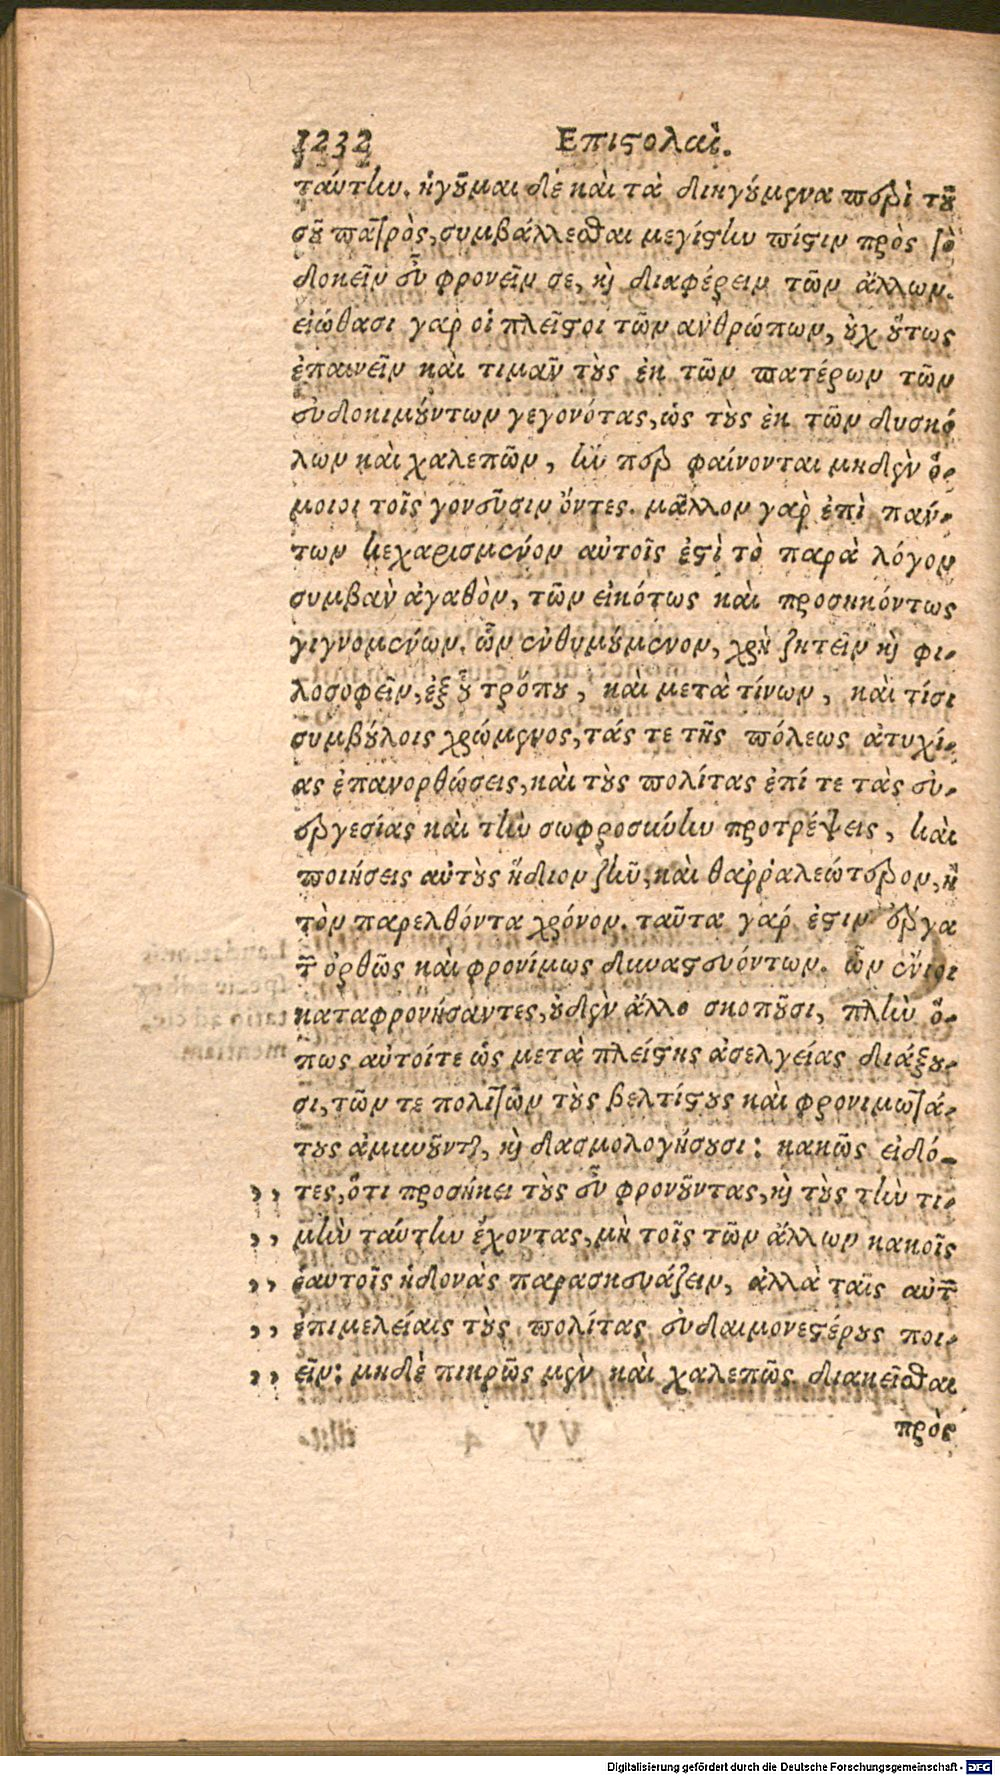 1232 Επιστολαί.
ταύτην. ἡγοῦμαι δὲ καὶ τὰ διηγούμενα περὶ τοῦ
σοῦ πατρὸς, συμβάλλεσθαι μεγίστην πίστιν πρὸς τὸ
δοκεῖν εὖ φρονεῖν σε, καὶ διαφέρειν τῶν ἄλλων.
εἰώθασι γὰρ οἱ πλεῖστοι τῶν ἀνθρώπων, οὐχ οὕτως
ἐπαινεῖν καὶ τιμᾶν τοὺς ἐκ τῶν πατέρων τῶν
εὐδοκιμούντων γεγονότας, ὡς τοὺς ἐκ τῶν δυσκό
λων καὶ χαλεπῶν, ἤν περ φαίνονται μηδὲν ὅ-
μοιοι τοῖς γονεῦσιν ὄντες. μᾶλλον γὰρ ἐπὶ πάν-
των κεχαρισμένον αὐτοῖς ἐστὶ τὸ παρὰ λόγον
συμβὰν ἀγαθὸν, τῶν εἰκότως καὶ προσηκόντως
γιγνομένων. ὧν ἐνθυμούμενον, χρὴ ζητεῖν καὶ φι-
λοσοφεῖν, ἐξ οὗ τρόπου, καὶ μετὰ τίνων, καὶ τίσι
συμβούλοις χρώμενος, τάς τε τῆς πόλεως ἀτυχί-
ας ἐπανορθώσεις, καὶ τοὺς πολίτας ἐπί τε τὰς εὐ-
εργεσίας καὶ τὴν σωφροσύνην προτρέψεις, καὶ
ποιήσεις αὐτοὺς ἥδιον ζῆν, καὶ θαρῥαλεώτερον, ἢ
τὸν παρελθόντα χρόνον. ταῦτα γάρ ἐστιν ἔργα
τῶν ὀρθῶς καὶ φρονίμως δυναστευόντων. ὧν ἔνιοι
καταφρονήσαντες, οὐδὲν ἄλλο σκοποῦσι, πλὴν ὅ-
πως αὐτοίτε ὡς μετὰ πλείστης ἀσελγείας διάξου-
σι, τῶν τε πολιτῶν τοὺς βελτίστους καὶ φρονιμωτά-
τους ἀμυνοῦνται, καὶ δασμολογήσουσι: κακῶς εἰδό-
,, τες, ὅτι προσήκει τοὺς εὖ φρονοῦντας, καὶ τοὺς τὴν τι-
,, μὴν ταύτην ἔχοντας, μὴ τοῖς τῶν ἄλλων κακοῖς
,, ἑαυτοῖς ἡδονὰς παρασκευάζειν, ἀλλὰ ταῖς αὐτῶν
,, ἐπιμελείαις τοὺς πολίτας εὐδαιμονεστέρους ποι-
,, εῖν: μηδὲ πικρῶς μὲν καὶ χαλεπῶς διακεῖσθαι
πρὸς
Digitalisierung gefördert durch die Deutsche Forschungsgemeinschaft - DFG